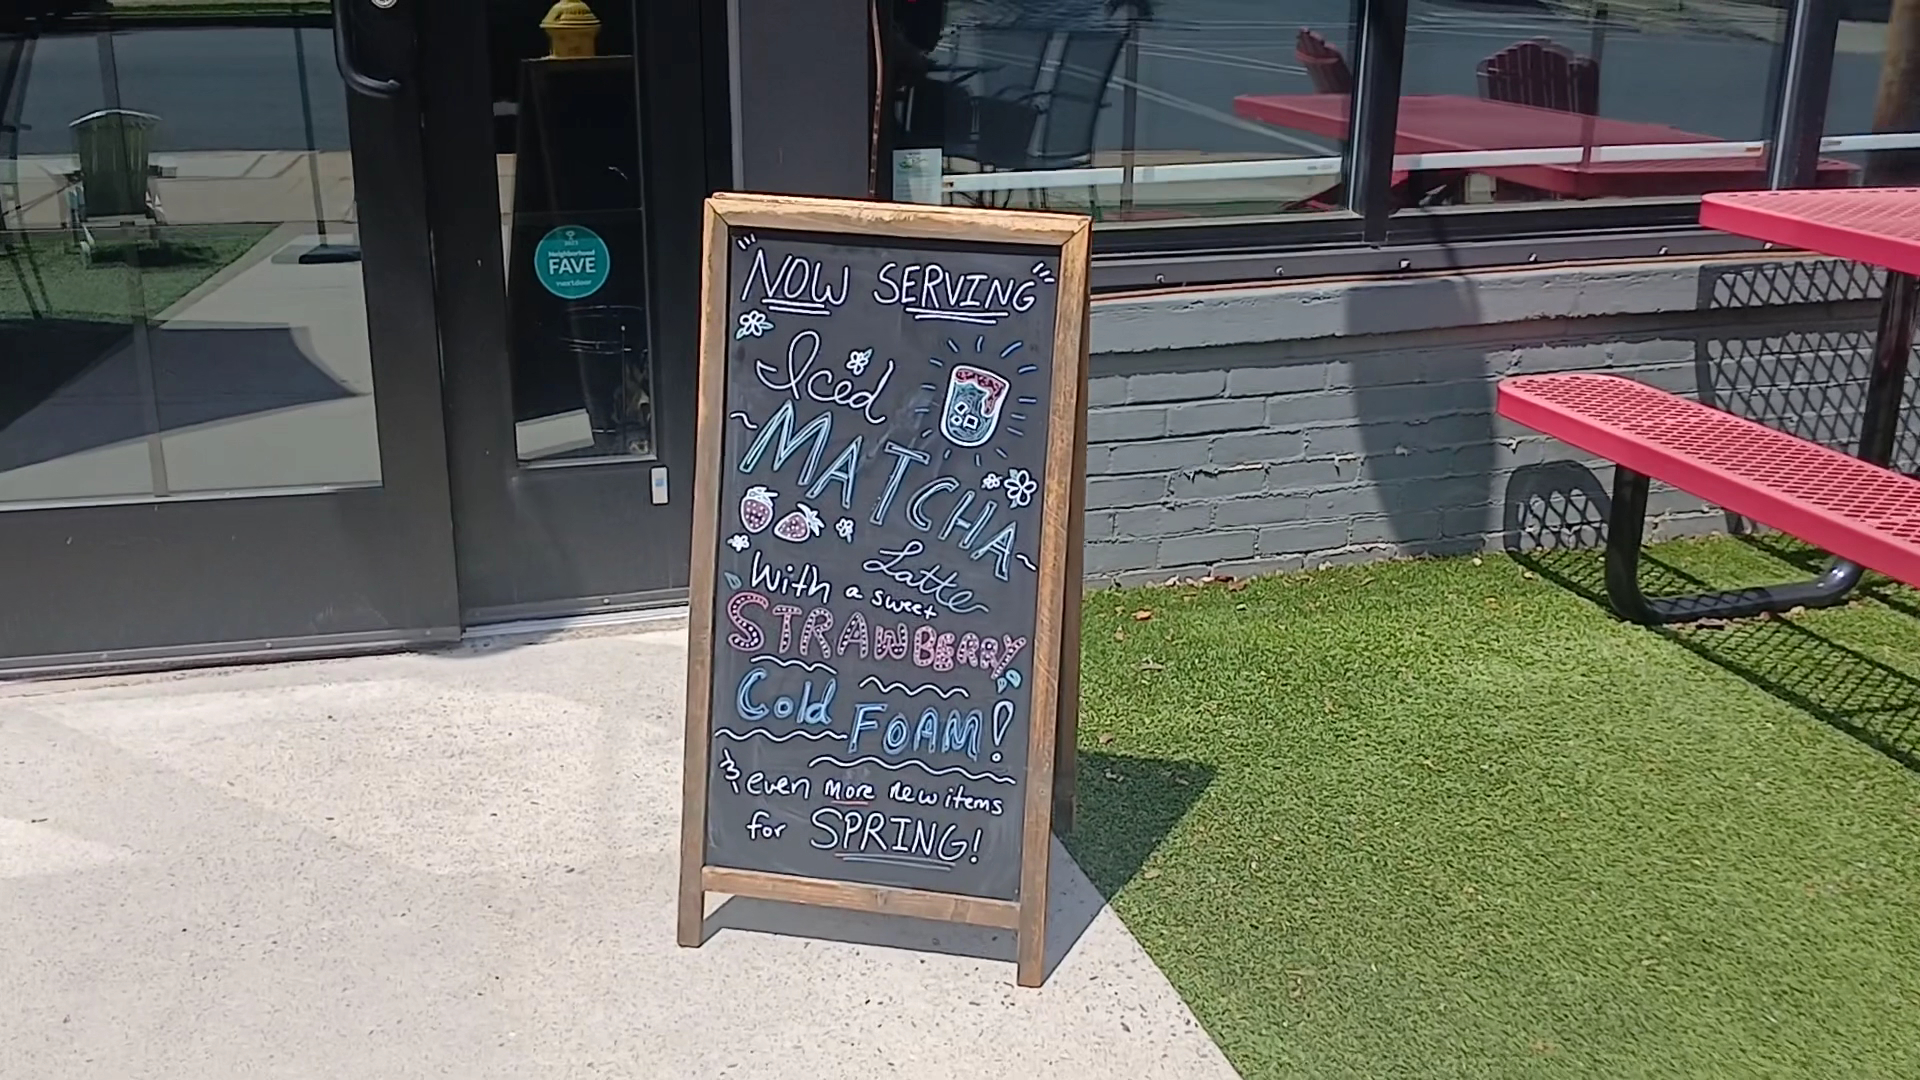 2023
Neighborhood
FAVE
nextdoor
"NOW SERVING"
Iced
~MATCHA~
Latte
with a sweet
STRAWBERRY
Cold FOAM!
& even more new items
for SPRING!